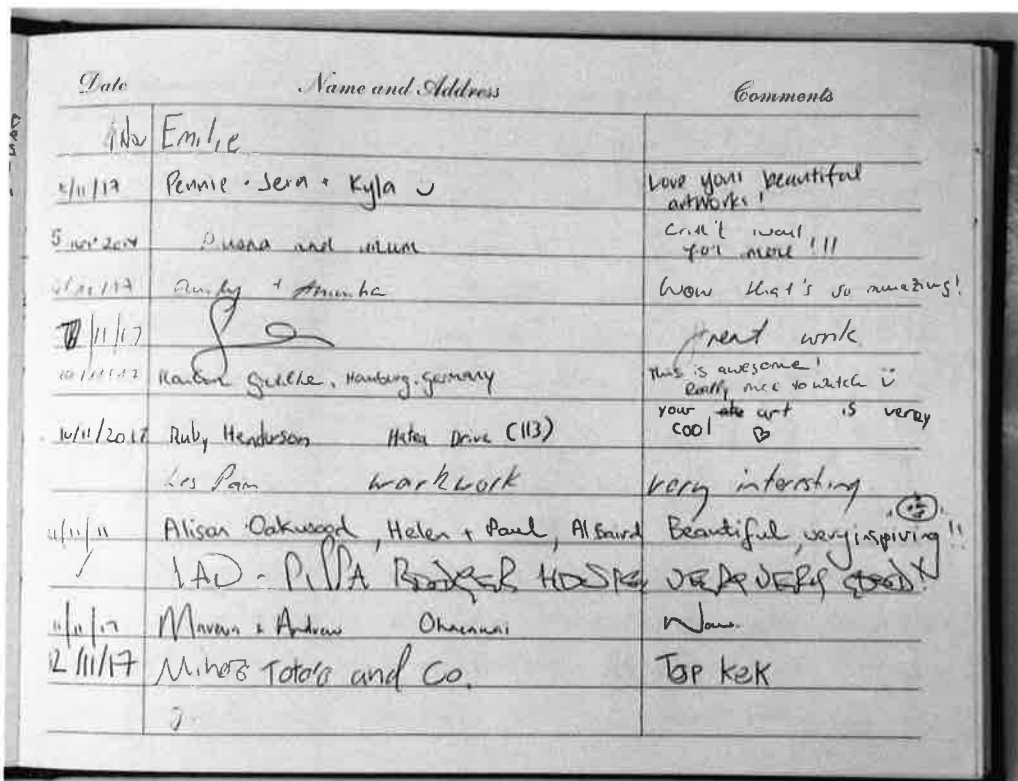 Date Name and Address Comments
1 Nov Emilie
/11/17 Pennie + Jern + Kyla Love your beautiful
artworks!
5 Nov and mum Can't wait
for more!!!
/11/17 + Wow that's so amazing!
/11/17 great work
Hamburg, Germany This is awesome!
Really nice to watch ü
10/11/2017 Ruby Henderson Hatea Drive (113) your art is veray
cool ♡
Les Pam workwork very interesting
11/11/11 Alison Oakwood, Helen + Paul, Al Baird Beautiful, very inspiring!!
PIPPA VERY VERY GOOD
11/11/17 + Andrew
12/11/17 and Co. Top Kek